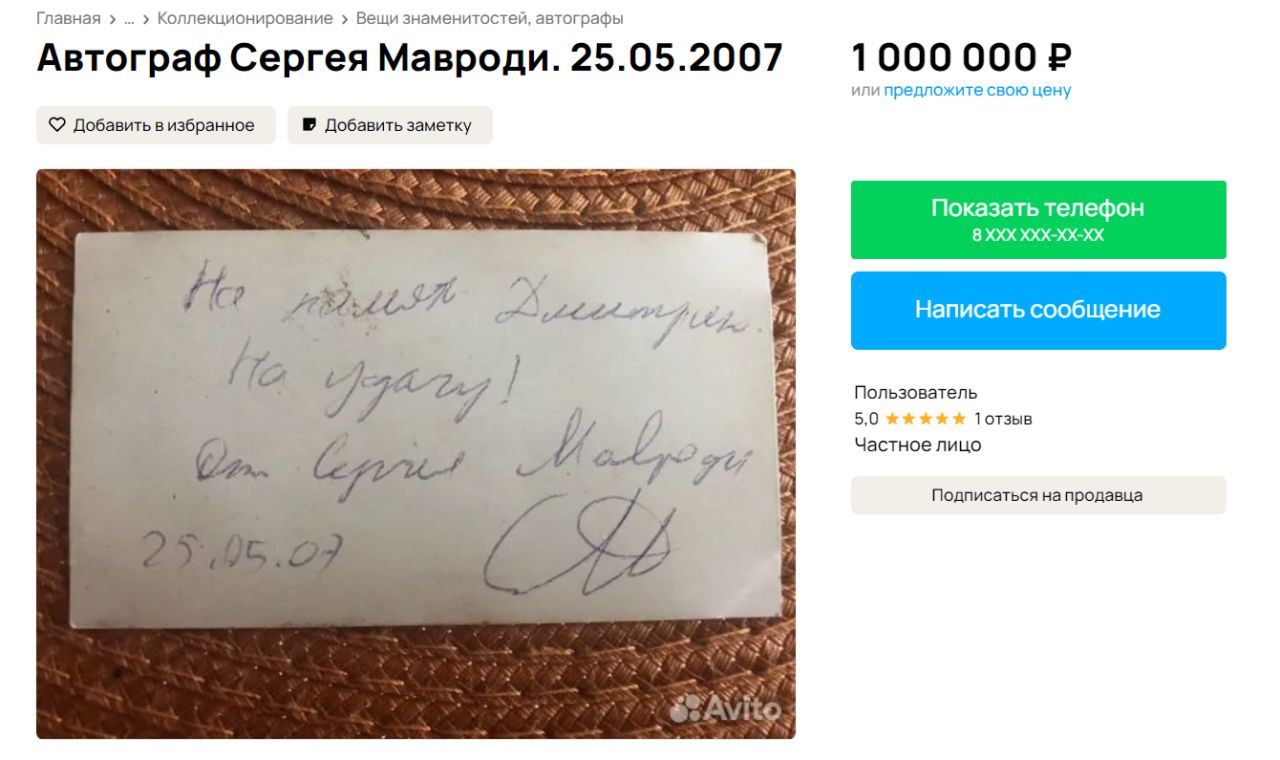 Главная > ... > Коллекционирование > Вещи знаменитостей, автографы
Автограф Сергея Мавроди. 25.05.2007
1 000 000 ₽
или предложите свою цену
Добавить в избранное
Добавить заметку
На память Дмитрию.
На удачу!
От Сергея Мавроди
25.05.07
Avito
Показать телефон
8 XXX XXX-XX-XX
Написать сообщение
Пользователь
5,0 ★★★★★ 1 отзыв
Частное лицо
Подписаться на продавца